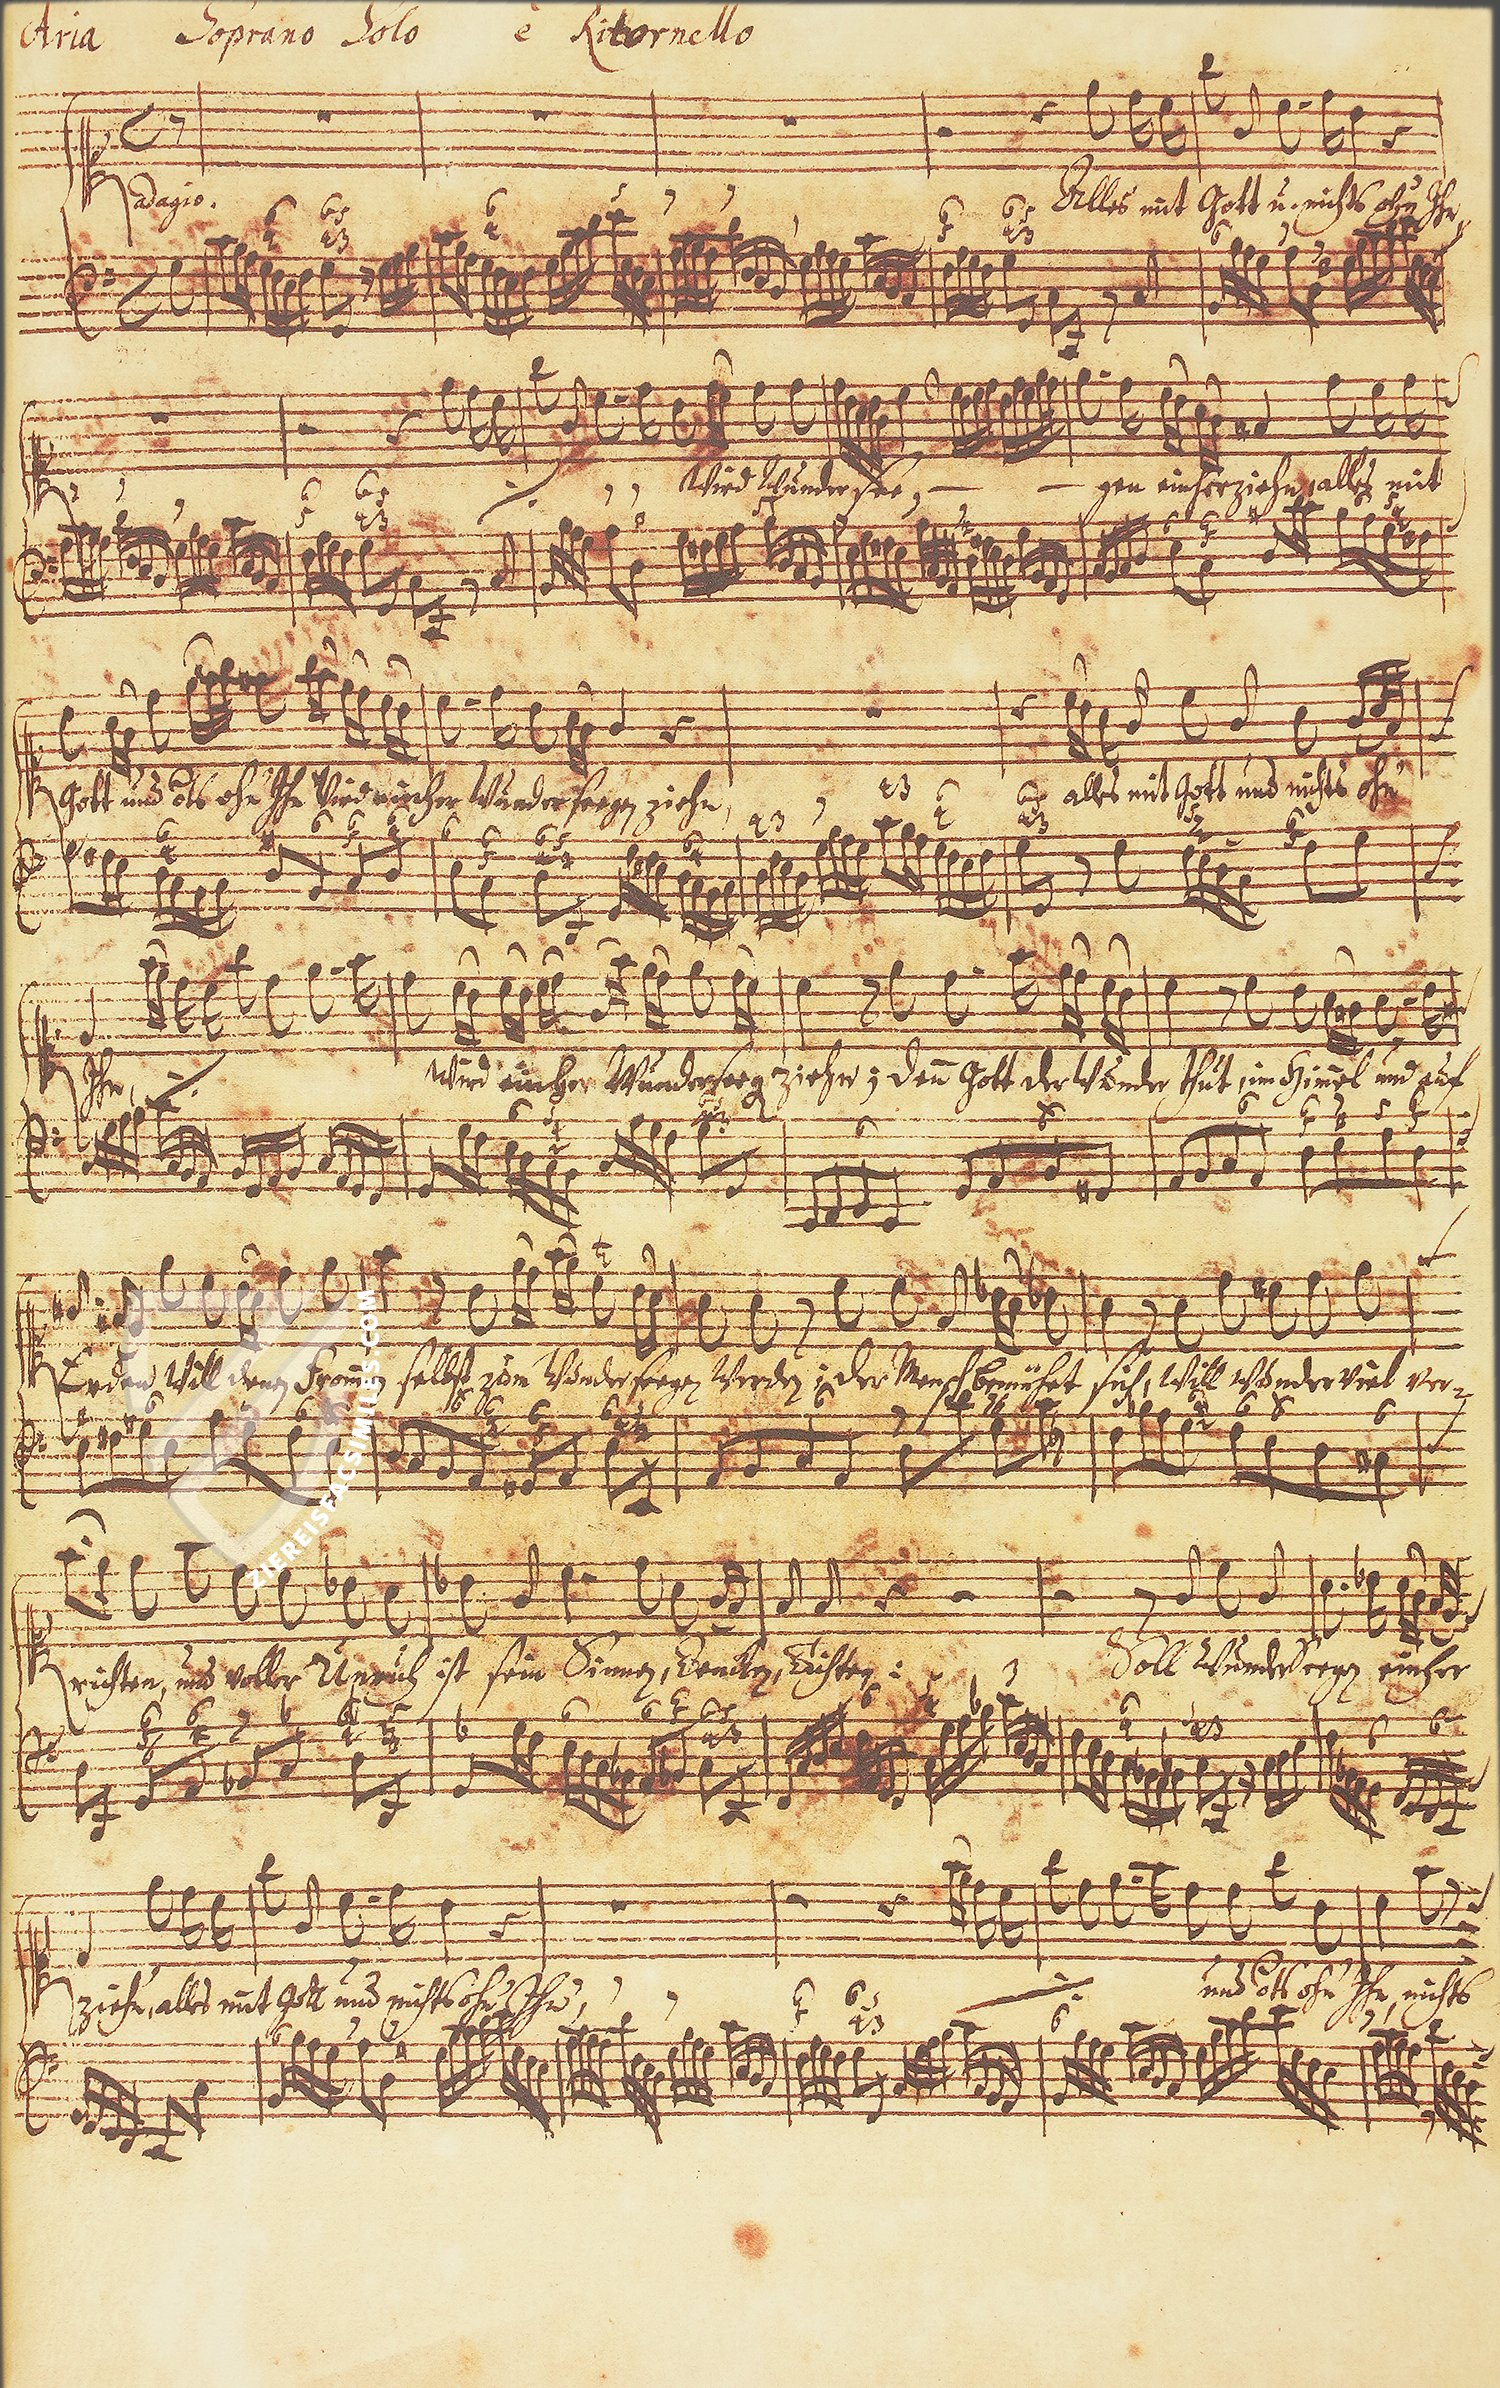 Aria Soprano Solo è Ritornello
adagio.
Alles mit Gott u. nichts ohn' Ihn
wird Wunder See, — — gen einherziehn, alles mit
Gott und nichts ohn' Ihn wird einher Wunder seegen ziehn, alles mit Gott und nichts ohn'
Ihn, wird einher Wunderseegen ziehn; denn Gott der Wunder thut, im Himmel und auf
Erden will denen Frommen selbst zum Wunderseegen werden; der Mensch bemühet sich, will Wunder viel ver-
richten, und voller Unruh ist sein Sinnen, Dencken, Tichten;
Soll Wunder Seegen einher
ziehn, alles mit Gott und nichts ohn' Ihn,
und nichts ohn' Ihn, nichts
ZIEREISFACSIMILES.COM